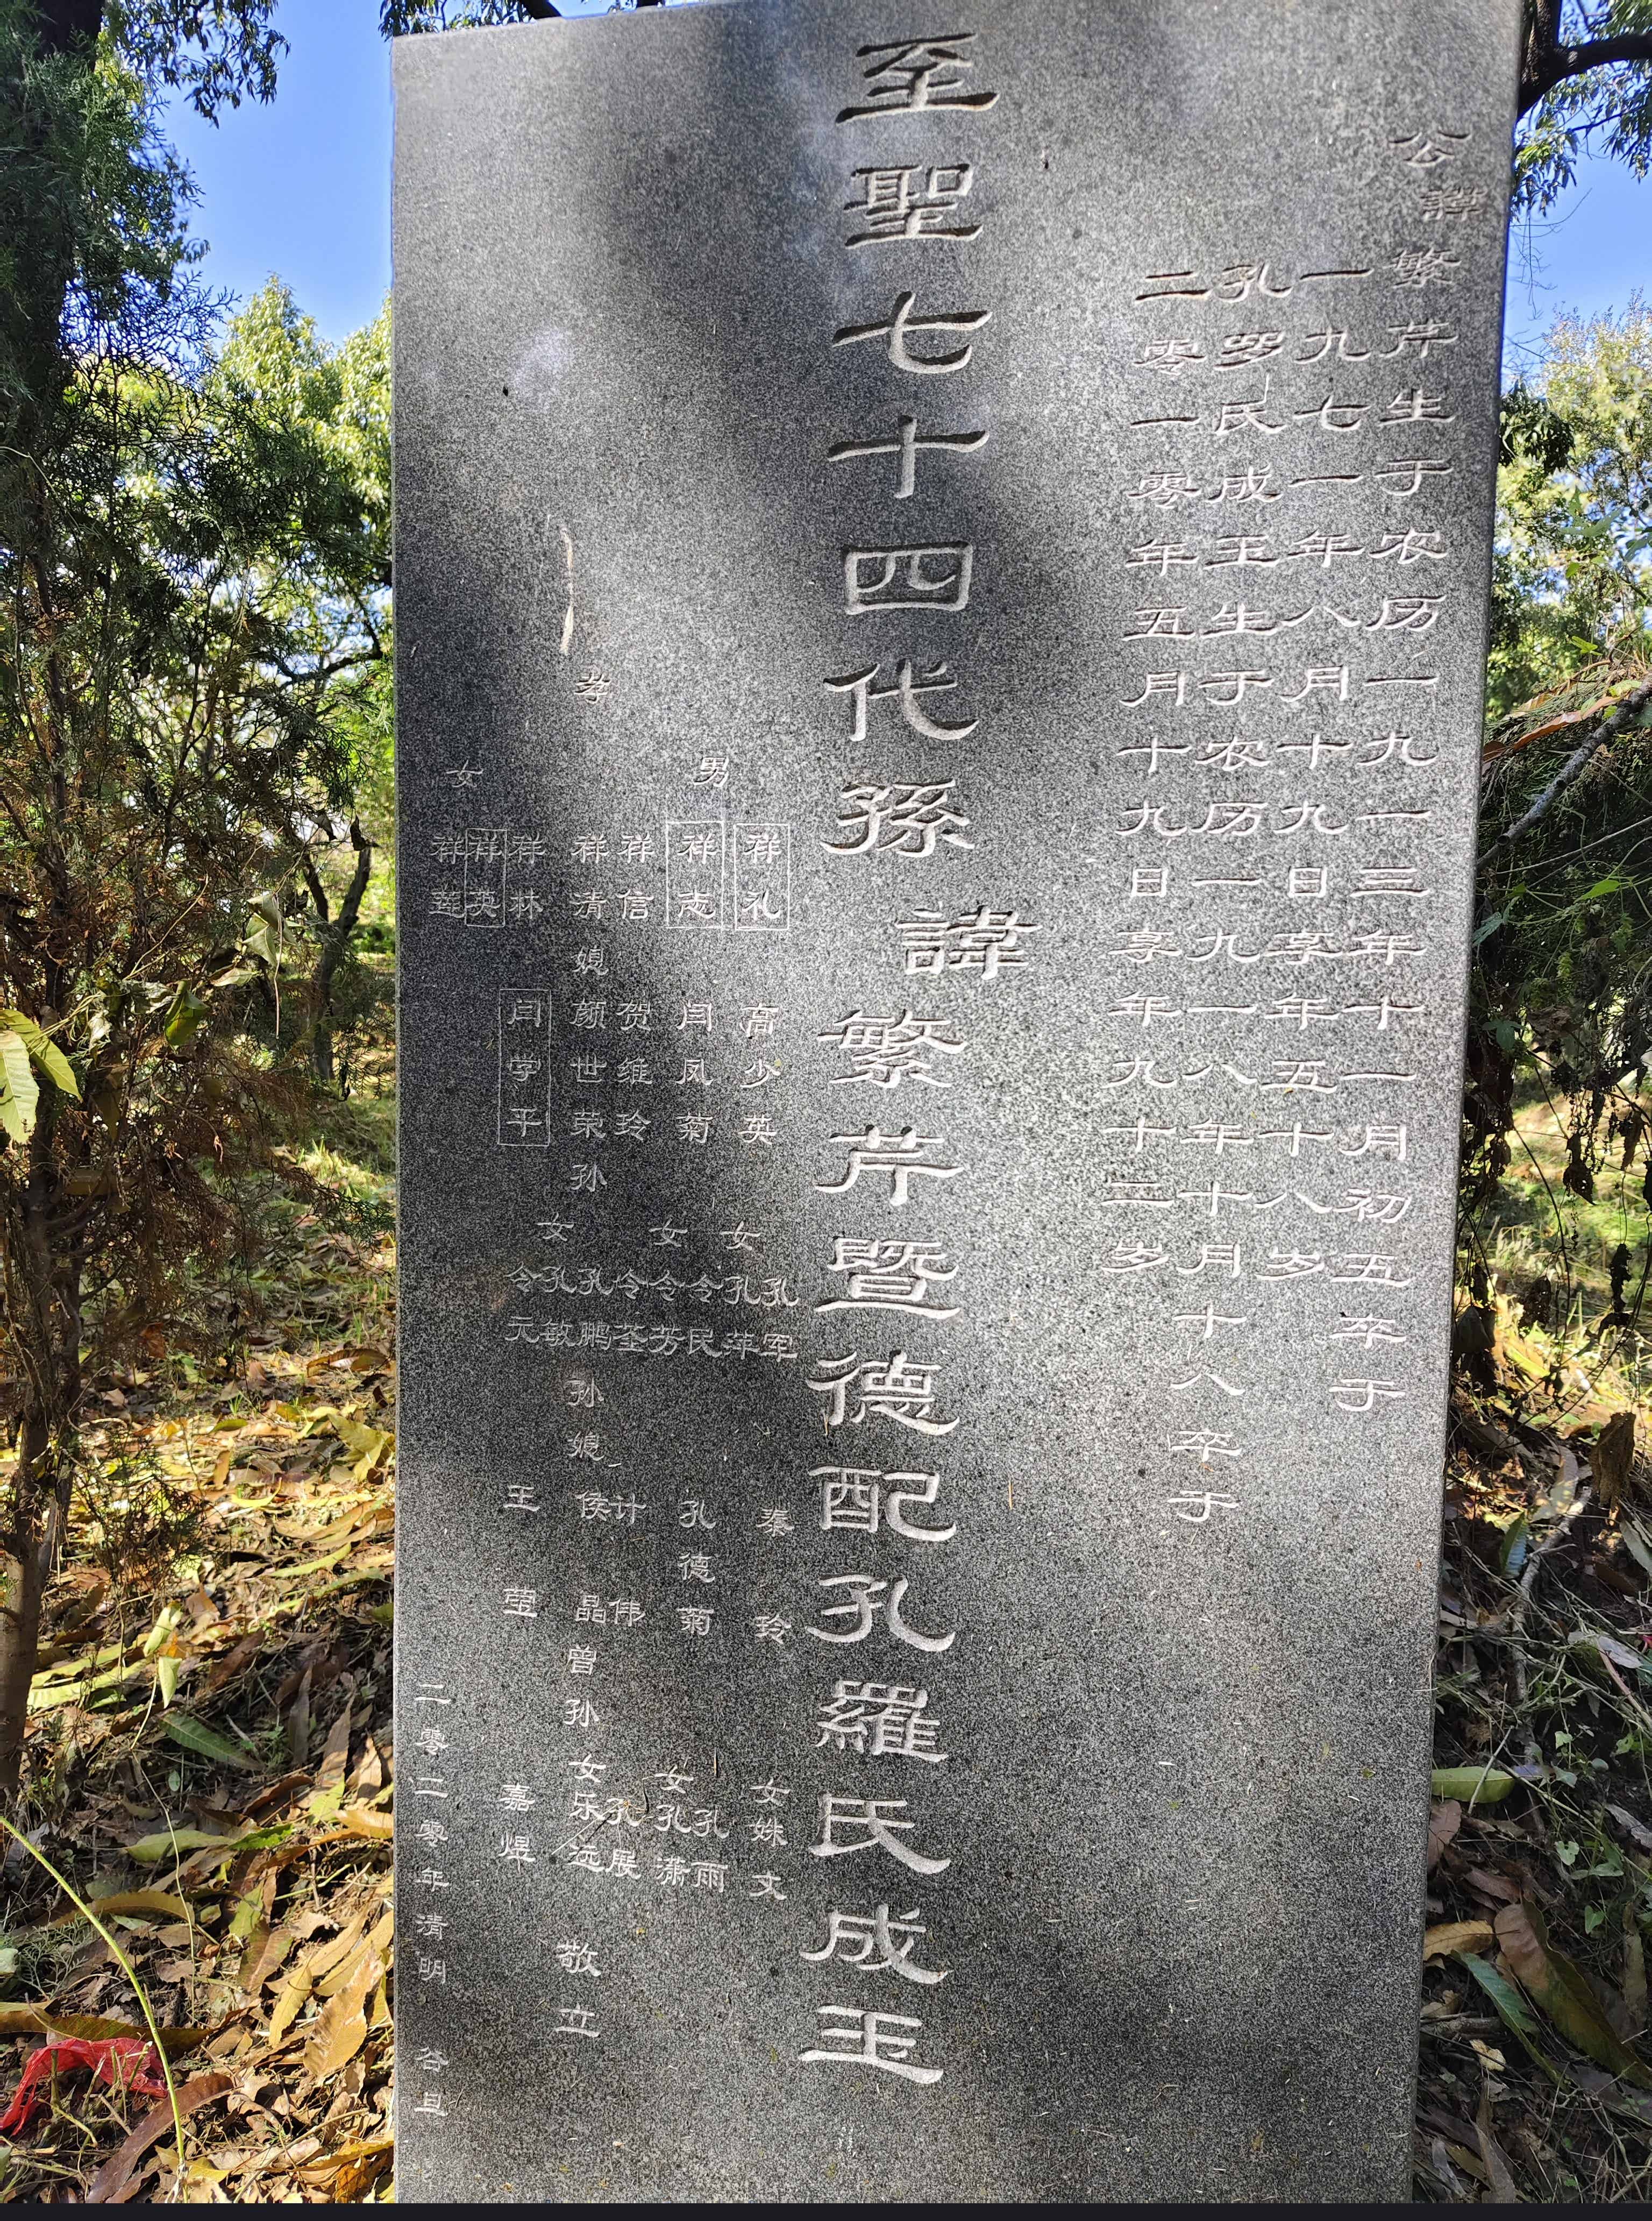 公諱繁芹生于农历一九一三年十一月初五卒于
一九七一年八月十九日享年五十八岁
孔罗氏成玉生于农历一九一八年十月十八卒于
二零一零年五月十九日享年九十二岁
至聖七十四代孫諱繁芹暨德配孔羅氏成玉
孝
男
祥礼
祥志
祥信
祥清
女
祥林
祥英
祥莲
媳
高少英
闫凤菊
贺维玲
颜世荣
闫学平
孙
孔军
女孔萍
令民
女令芳
令荃
孔鹏
女孔敏
令元
孙媳
秦玲
孔德菊
计伟
侯晶
王莹
曾孙
女姝文
孔雨
女孔潇
孔展
女乐远
嘉煜
敬立
二零二零年清明谷旦